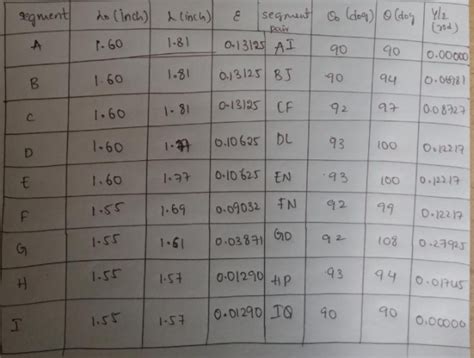 segment λ0 (inch) λ (inch) ε segment pair θ0 (deg) θ (deg) γ/2 (rad)
A 1.60 1.81 0.13125 AI 90 90 0.00000
B 1.60 1.81 0.13125 BJ 90 94 0.06981
C 1.60 1.81 0.13125 CF 92 97 0.08727
D 1.60 1.77 0.10625 DL 93 100 0.12217
E 1.60 1.77 0.10625 EN 93 100 0.12217
F 1.55 1.69 0.09032 FN 92 99 0.12217
G 1.55 1.61 0.03871 GO 92 108 0.27925
H 1.55 1.57 0.01290 HP 93 94 0.01745
I 1.55 1.57 0.01290 IQ 90 90 0.00000